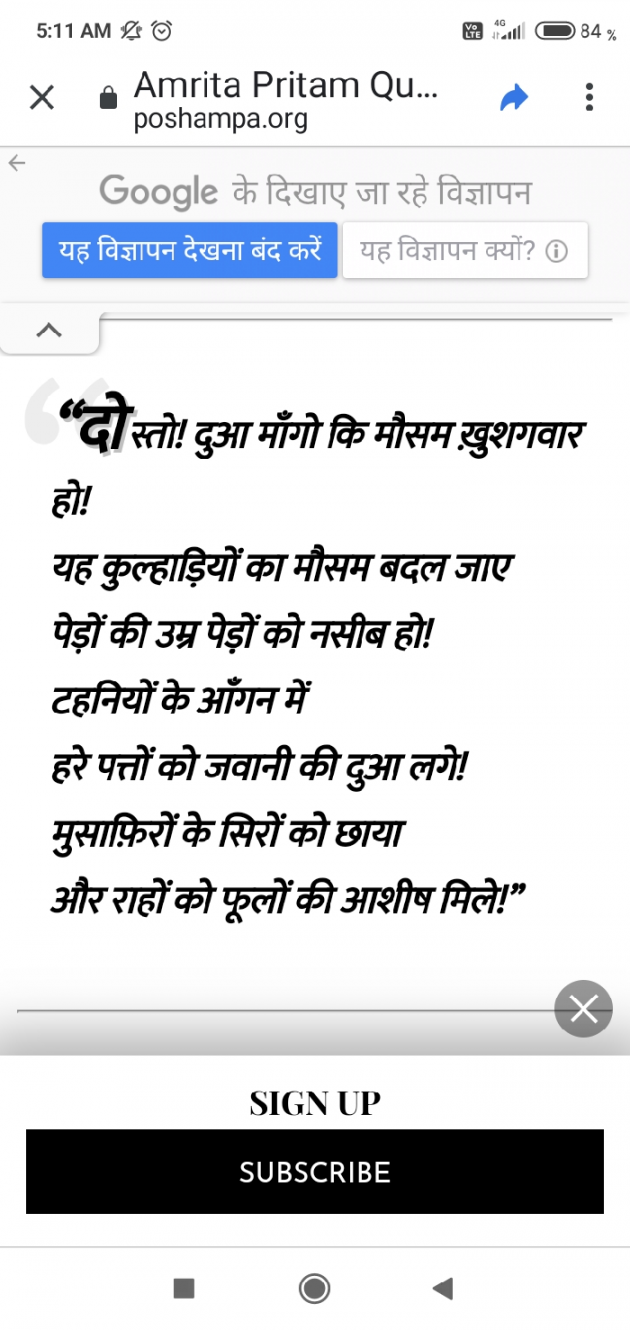 5:11 AM Vo LTE 4G 84 %
Amrita Pritam Qu...
poshampa.org
Google के दिखाए जा रहे विज्ञापन
यह विज्ञापन देखना बंद करें यह विज्ञापन क्यों?
“दोस्तो! दुआ माँगो कि मौसम ख़ुशगवार
हो!
यह कुल्हाड़ियों का मौसम बदल जाए
पेड़ों की उम्र पेड़ों को नसीब हो!
टहनियों के आँगन में
हरे पत्तों को जवानी की दुआ लगे!
मुसाफ़िरों के सिरों को छाया
और राहों को फूलों की आशीष मिले!”
SIGN UP
SUBSCRIBE